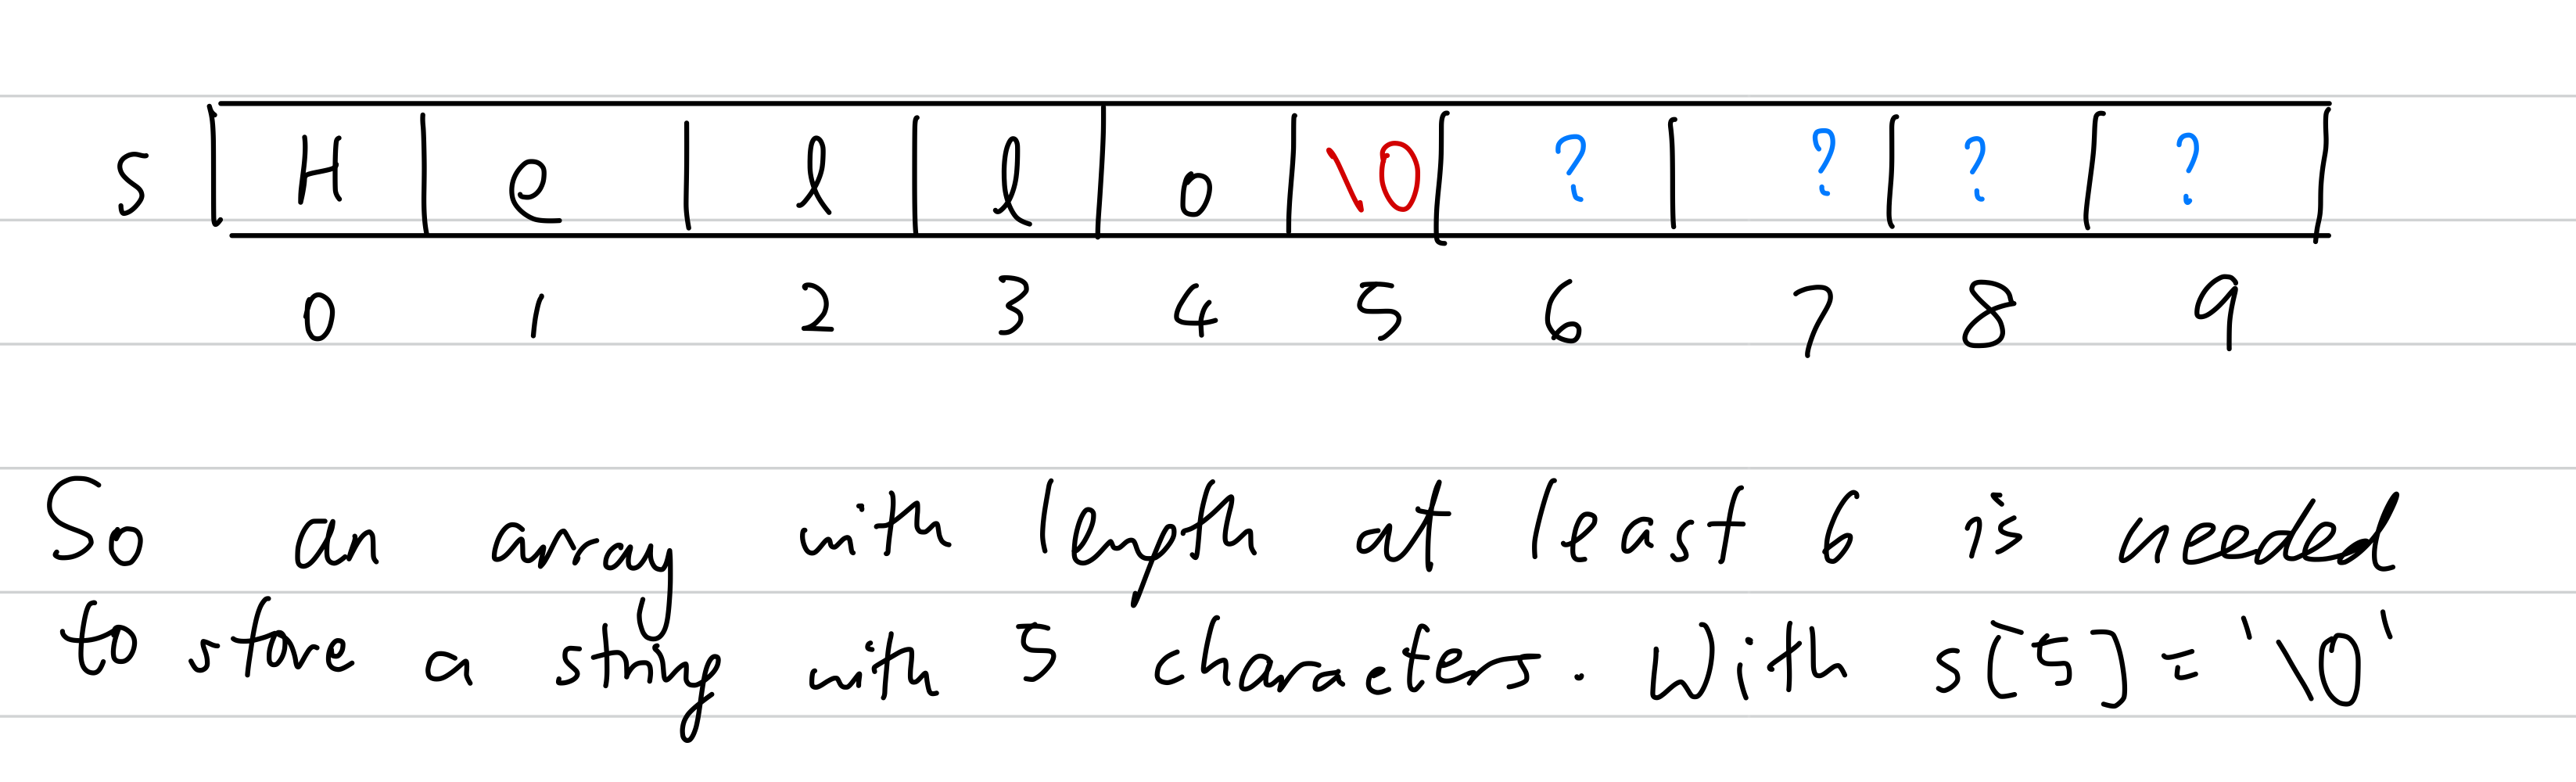 s H e l l o \0 ? ? ? ?
0 1 2 3 4 5 6 7 8 9
So an array with length at least 6 is needed
to store a string with 5 characters. With s[5] = '\0'